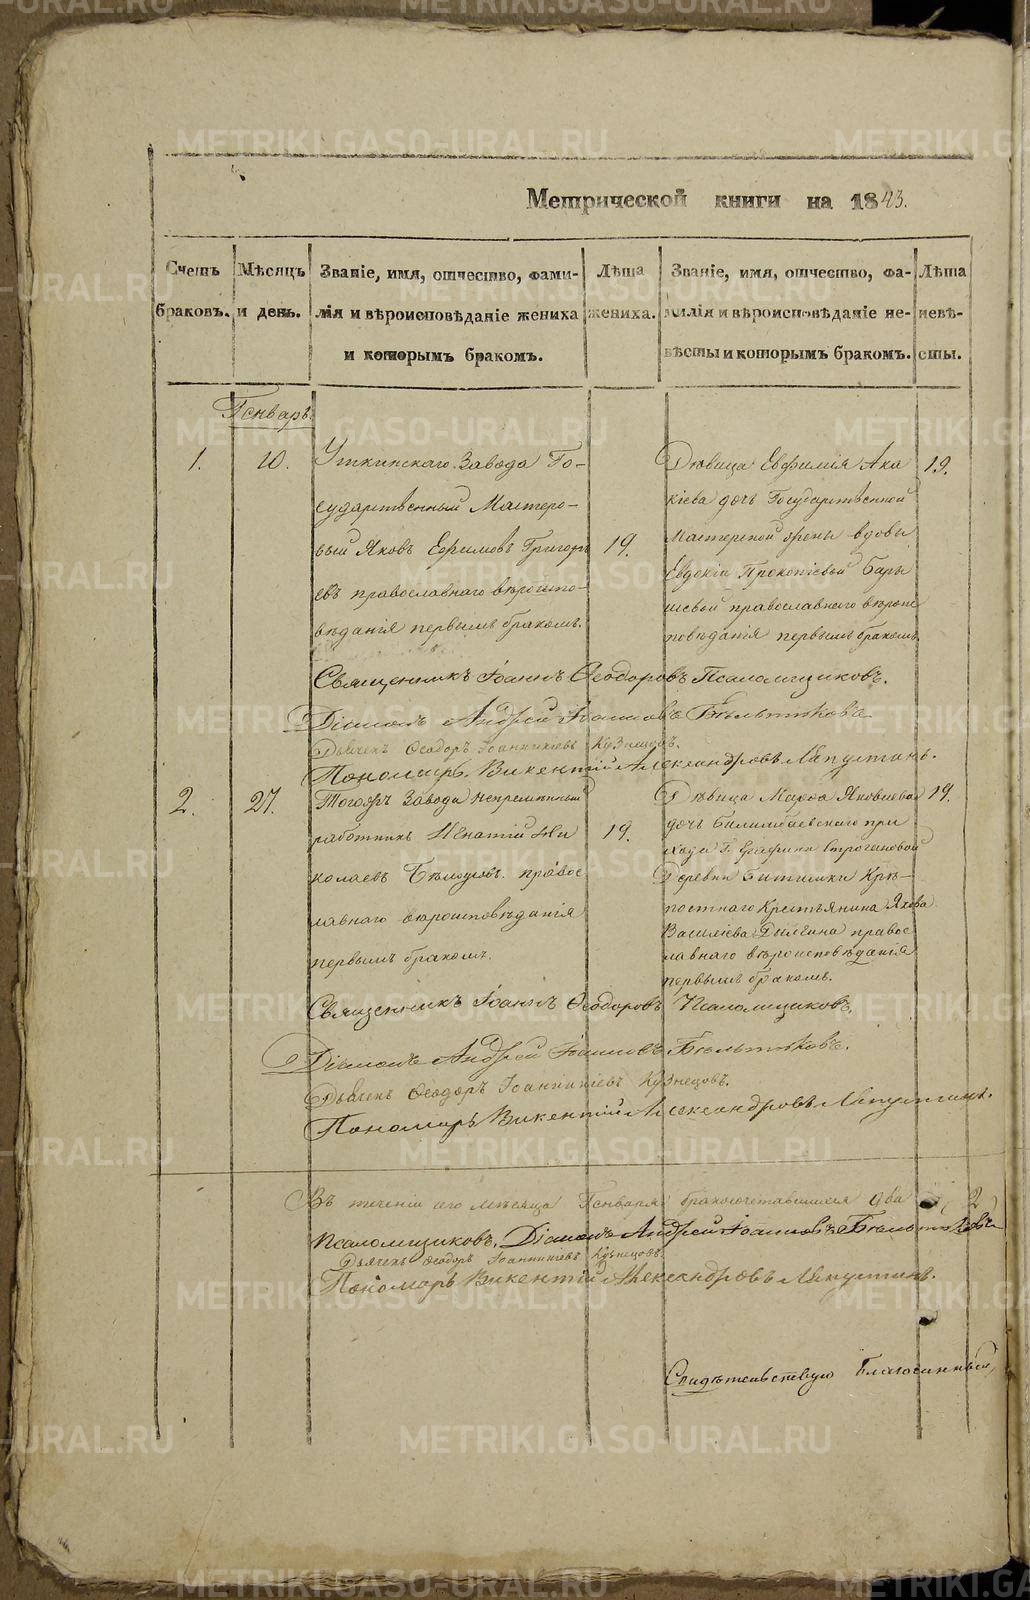 Метрической книги на 1843.
Счетъ браковъ.
Мѣсяцъ и день.
Званіе, имя, отчество, фами-
лія и вѣроисповѣданіе жениха
и которымъ бракомъ.
Лѣта жениха.
Званіе, имя, отчество, фа-
милія и вѣроисповѣданіе не-
вѣсты и которымъ бракомъ.
Лѣта невѣ-
сты.
Генварь.
1.
10.
Уткинскаго Завода Го-
сударственный Мастеро-
вый Яковъ Ефимовъ Григорь
евъ православнаго вѣроиспо-
вѣданія первымъ бракомъ.
19.
Дѣвица Евфимія Ака
кіева дочь Государственной
Мастерской жены вдовы
Евдокіи Прокопіевой Бары
шевой православнаго вѣроис
повѣданія первымъ бракомъ.
19.
Священникъ Іоаннъ Ѳеодоровъ Псаломщиковъ.
Діаконъ Андрей Іоанновъ Бѣльтюковъ
Дьячекъ Ѳеодоръ Іоанникіевъ Кузнецовъ.
Пономарь Викентій Александровъ Ляпустинъ.
2.
27.
Тогожъ Завода непремѣнный
работникъ Игнатій Ни
колаевъ Бѣлоусовъ правос
лавнаго вѣроисповѣданія
первымъ бракомъ.
19.
Дѣвица Марѳа Яковлева
дочь Билимбаевскаго при
хода Г. Графини Строгановой
Деревни Битимки Крѣ-
постнаго Крестьянина Якова
Василіева правос
лавнаго вѣроисповѣданія
первымъ бракомъ.
19.
Священникъ Іоаннъ Ѳеодоровъ Псаломщиковъ.
Діаконъ Андрей Іоанновъ Бѣльтюковъ.
Дьячекъ Ѳеодоръ Іоанникіевъ Кузнецовъ.
Пономарь Викентій Александровъ Ляпустинъ.
Въ теченіи сего мѣсяца Генваря бракосочетавшихся два (2)
Псаломщиковъ. Діаконъ Андрей Іоанновъ Бѣльтюковъ
Дьячекъ Ѳеодоръ Іоанникіевъ Кузнецовъ.
Пономарь Викентій Александровъ Ляпустинъ.
Свидѣтельствую Благочинный,
METRIKI.GASO-URAL.RU